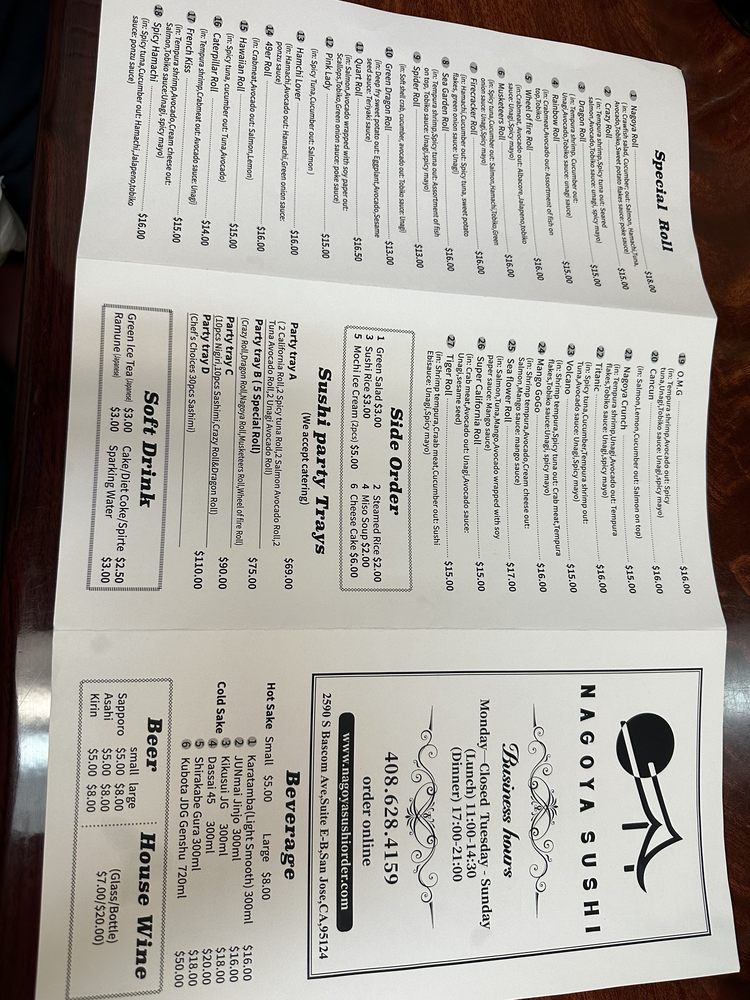 Special Roll
1 Nagoya Roll $18.00
(in: Crawfish salad, Cucumber; out: Salmon, Hamachi, Tuna,
Avocado,Tobiko,Sweet potato flakes sauce: poke sauce)
2 Crazy Roll $15.00
(in: Tempura shrimp,Spicy tuna out: Seared
salmon,Avocado,Tobiko sauce: unagi, spicy mayo)
3 Dragon Roll $15.00
(in: Tempura shrimp, Cucumber out:
Unagi,Avocado,Tobiko sauce: unagi sauce)
4 Rainbow Roll $15.00
(in: Crabmeat,Avocado out: Assortment of fish on
top,Tobiko)
5 Wheel of fire Roll $16.00
(in:Crabmeat, Avocado out: Albacore,Jalapeno,tobiko
sauce: Unagi,Spicy mayo)
6 Musketeers Roll $16.00
(in: Spicy tuna,Cucumber out: Salmon,Hamachi,Tobiko,Green
onion sauce: Unagi,Spicy mayo)
7 Firecracker Roll $16.00
(in: Hamachi,Cucumber out: Spicy tuna, sweet potato
flakes, green onion sauce: Unagi)
8 Sea Garden Roll $16.00
(in: Tempura shrimp,Spicy tuna out: Assortment of fish
on top, Tobiko sauce: Unagi,spicy mayo)
9 Spider Roll $13.00
(in: Soft shell crab, cucumber, avocado out: Tobiko sauce: Unagi)
10 Green Dragon Roll $13.00
(in: Deep fry sweet potato out: Eggplant,Avocado,Sesame
seed sauce: Teriyaki sauce)
11 Quart Roll $16.50
(in: Salmon,Avocado wrapped with soy paper out:
Scallops,Tobiko,Green onion sauce: poke sauce)
12 Pink Lady $15.00
(in: Spicy Tuna,Cucumber out: Salmon )
13 Hamchi Lover $16.00
(in: Hamachi,Avocado out: Hamachi,Green onion sauce:
ponzu sauce)
14 49er Roll $16.00
(in: Crabmeat,Avocado out: Salmon,Lemon)
15 Hawaiian Roll $15.00
(in: Spicy tuna, cucumber out: Tuna,Avocado)
16 Caterpillar Roll $14.00
(in: Tempura shrimp,Crabmeat out: Avocado sauce: Unagi)
17 French Kiss $15.00
(in: Tempura shrimp,Avocado,Cream cheese out:
Salmon,Tobiko sauce:Unagi, spicy mayo)
18 Spicy Hamachi $16.00
(in: Spicy tuna,Cucumber out: Hamachi,Jalapeno,tobiko
sauce: ponzu sauce)
19 O.M.G $16.00
(in: Tempura shrimp,Avocado out: Spicy
tuna,Unagi,Tobiko sauce: Unagi,spicy mayo)
20 Cancun $16.00
(in: Salmon,Lemon,Cucumber out: Salmon on top)
21 Nagoya Crunch $15.00
(in: Tempura shrimp,Unagi,Avocado out: Tempura
flakes,Tobiko sauce: Unagi,spicy mayo)
22 Titanic $16.00
(in: Spicy tuna,Cucumber,Tempura shrimp out:
Tuna,Avocado sauce: Unagi,Spicy mayo)
23 Volcano $15.00
(in: Shrimp tempura,Spicy tuna out: Crab meat,Tempura
flakes,Tobiko sauce: Unagi,Spicy mayo)
24 Mango GoGo $16.00
(in: Shrimp tempura,Avocado,Cream cheese out:
Salmon,Mango sauce: mango sauce)
25 Sea flower Roll $17.00
(in: Salmon,Tuna,Mango,Avocado wrapped with soy
paper sauce: Mango sauce)
26 Super California Roll $15.00
(in: Crab meat,Avocado out: Unagi,Avocado sauce:
Unagi,sesame seed)
27 Tiger Roll $15.00
(in: Shrimp tempura,Craab meat,Cucumber out: Sushi
Ebisauce: Unagi,Spicy mayo)
Side Order
1 Green Salad $3.00 2 Steamed Rice $2.00
3 Sushi Rice $3.00 4 Miso Soup $2.00
5 Mochi Ice Cream (2pcs) $5.00 6 Cheese Cake $6.00
Sushi party Trays
(We accept catering)
Party tray A $69.00
( 2 California Roll,2 Spicy tuna Roll,2 Salmon Avocado Roll,2
Tuna Avocado Roll,2 Unagi Avocado Roll)
Party tray B ( 5 Special Roll) $75.00
(Crazy Roll,Dragon Roll,Nagoya Roll,Musketeers Roll,Wheel of fire Roll)
Party tray C $90.00
(10pcs Nigiri,10pcs Sashimi,Crazy Roll&Dragon Roll)
Party tray D $110.00
(Chef's Choices 30pcs Sashimi)
Soft Drink
Green Ice Tea (Japanese) $3.00 Cake/Diet Coke/Spirte $2.50
Ramune (Japanese) $3.00 Sparking Water $3.00
NAGOYA SUSHI
Business hours
Monday—Closed Tuesday - Sunday
(Lunch) 11:00-14:30
(Dinner) 17:00-21:00
408.628.4159
order online
www.nagoyasushiorder.com
2590 S Bascom Ave,Suite E-B,San Jose,CA,95124
Beverage
Hot Sake Small $5.00 Large $8.00
Cold Sake
1 Karatamba(Light Smooth) 300ml $16.00
2 JUNmai Jinjo 300ml $16.00
3 Kikusui JG 300ml $18.00
4 Dassai 45 300ml $20.00
5 Shirakabe Gura 300ml $18.00
6 Kubota JDG Genshu 720ml $50.00
Beer
small large
Sapporo $5.00 $8.00
Asahi $5.00 $8.00
Kirin $5.00 $8.00
House Wine
(Glass/Bottle)
$7.00/$20.00)